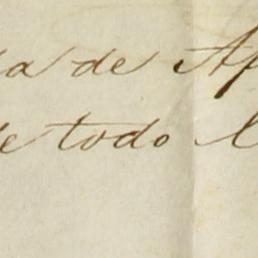 da de Ap
de todo l